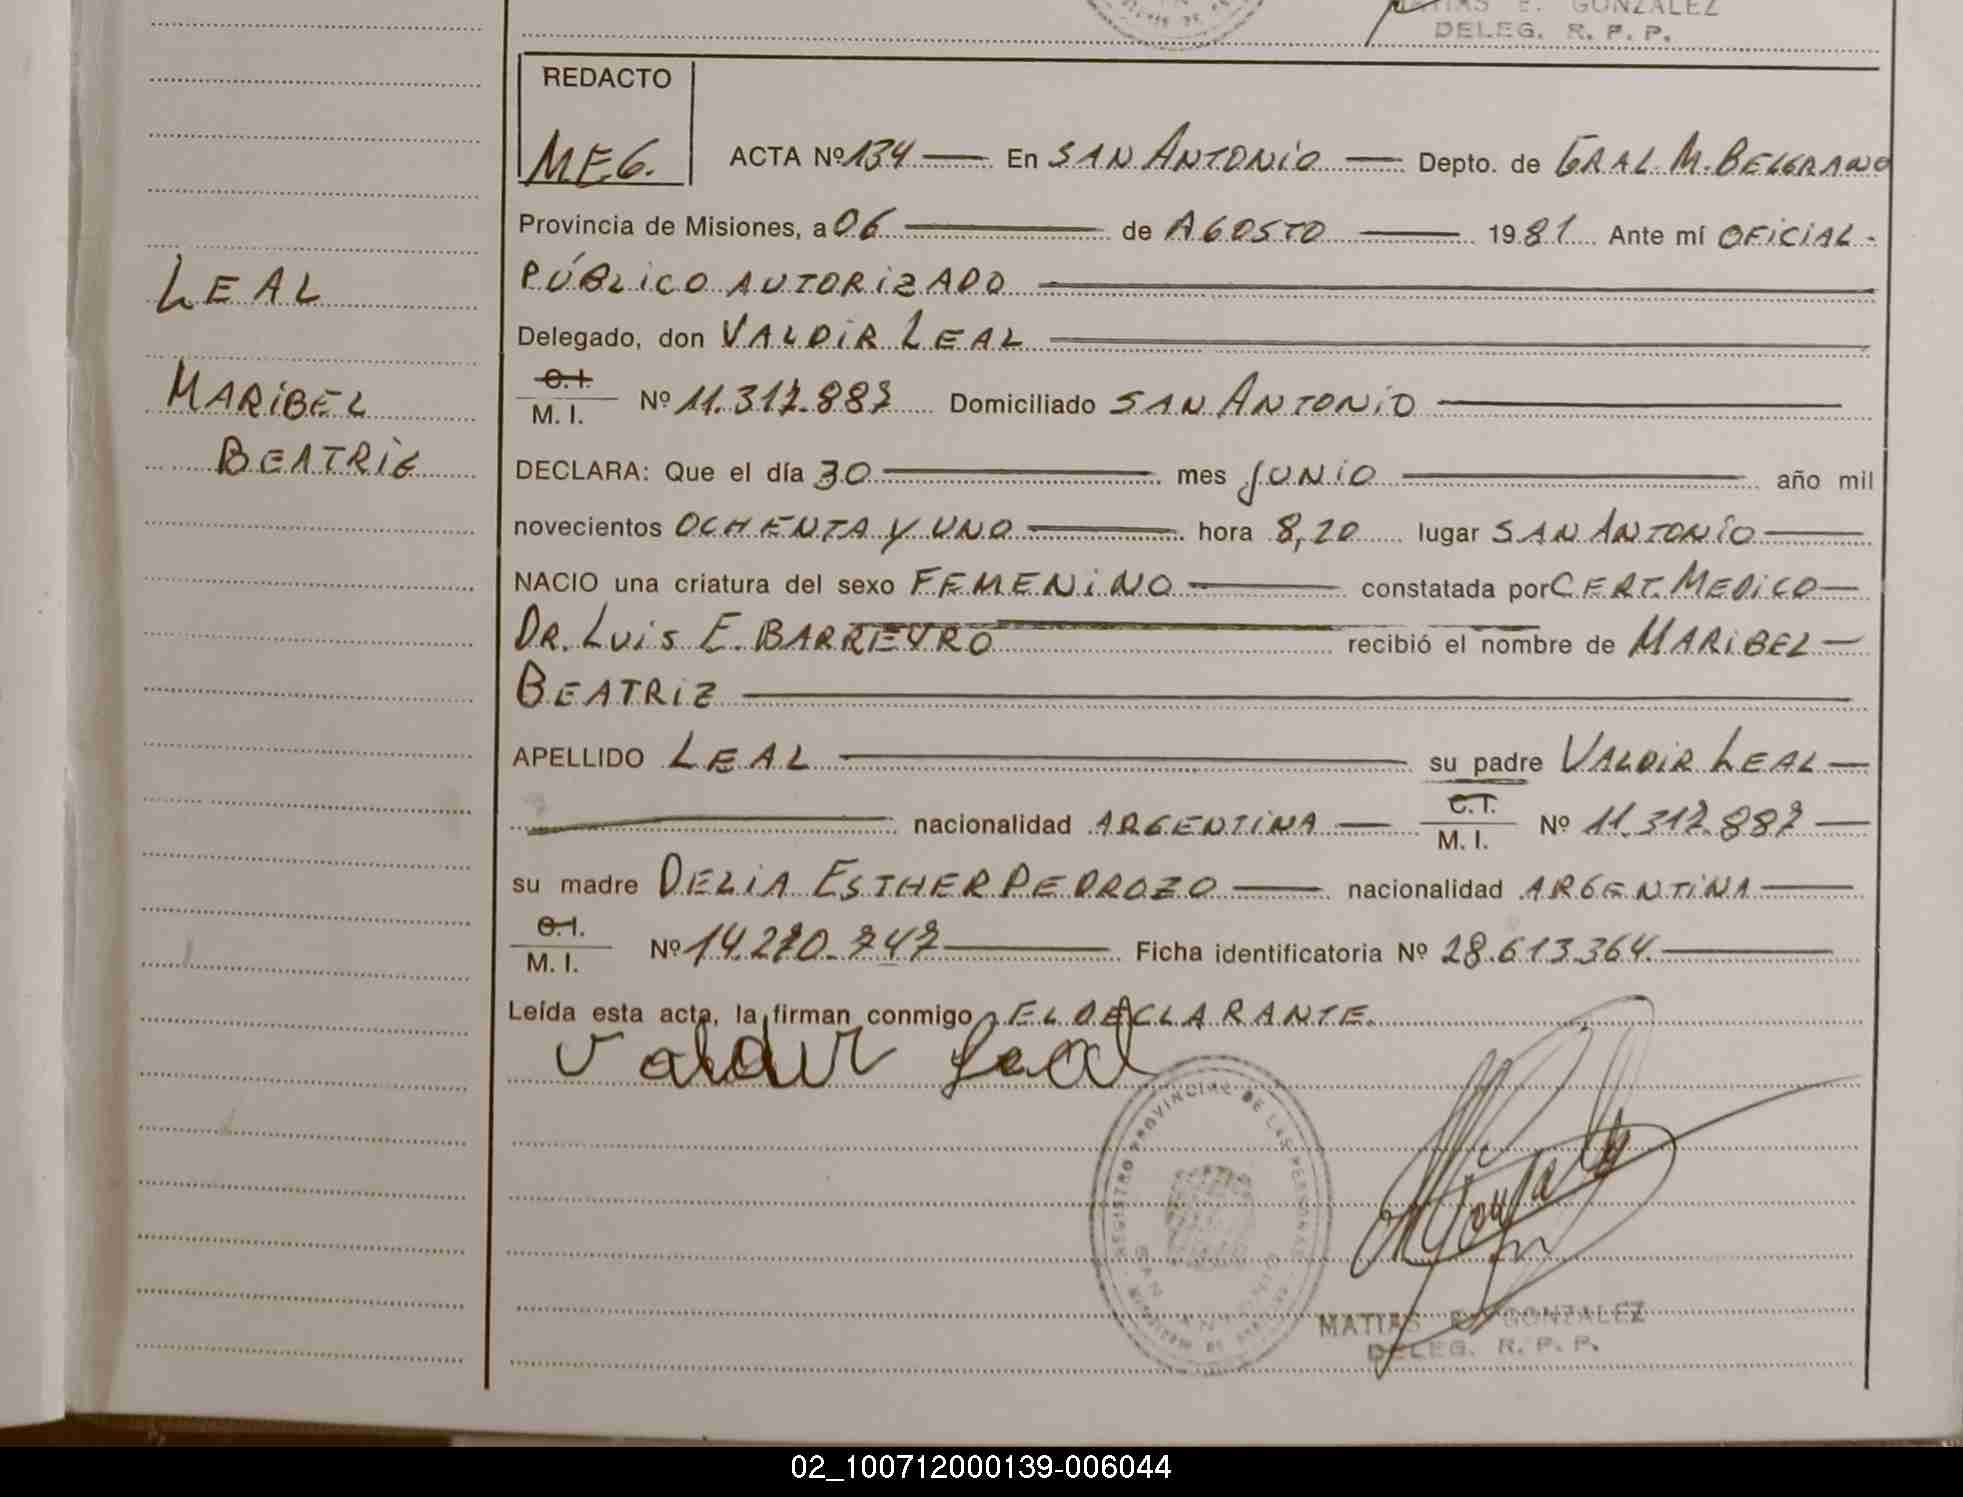 GONZALEZ
DELEG. R. P. P.
REDACTO
M.E.G.
ACTA Nº 134 En SAN ANTONIO Depto. de GRAL M. BELGRANO
Provincia de Misiones, a 06 de AGOSTO 1981 Ante mí OFICIAL-
PÚBLICO AUTORIZADO
Delegado, don VALDIR LEAL
C.I.
M. I. Nº 11.317.887 Domiciliado SAN ANTONIO
DECLARA: Que el día 30 mes JUNIO año mil
novecientos OCHENTA Y UNO hora 8,20 lugar SAN ANTONIO
NACIO una criatura del sexo FEMENINO constatada por CERT. MEDICO
DR. LUIS E. BARREYRO recibió el nombre de MARIBEL
BEATRIZ
APELLIDO LEAL su padre VALDIR LEAL
nacionalidad ARGENTINA C.I.
M. I. Nº 11.317.887
su madre DELIA ESTHER PEDROZO nacionalidad ARGENTINA
C.I.
M. I. Nº 14.270.747 Ficha identificatoria Nº 28.613.364.
Leída esta acta, la firman conmigo EL DECLARANTE.
Valdir Leal
REGISTRO PROVINCIAL DE LAS PERSONAS
SAN
MATIAS E. GONZALEZ
DELEG. R. P. P.
LEAL
MARIBEL
BEATRIZ
02_100712000139-006044